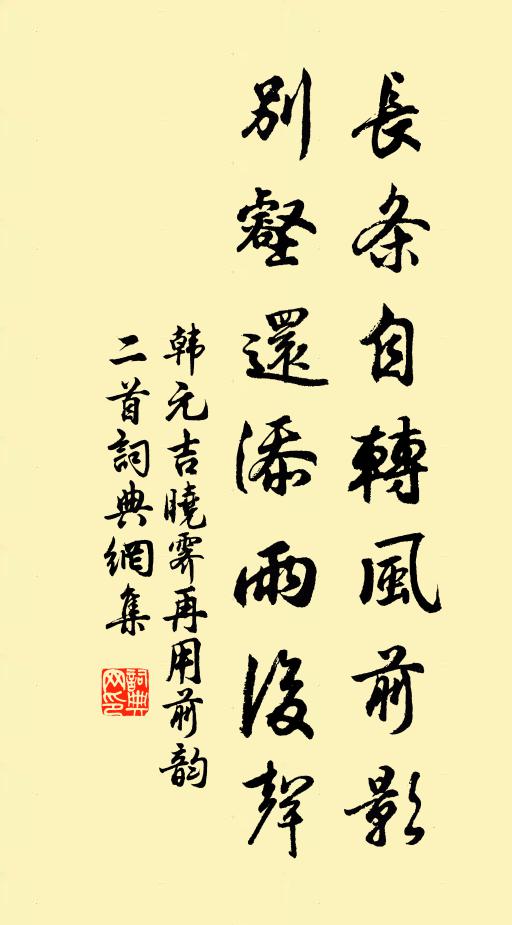 長条自轉風前影
別壑還添雨後聲
韩元吉曉霽再用前韵
二首詞典網集
詞典网印